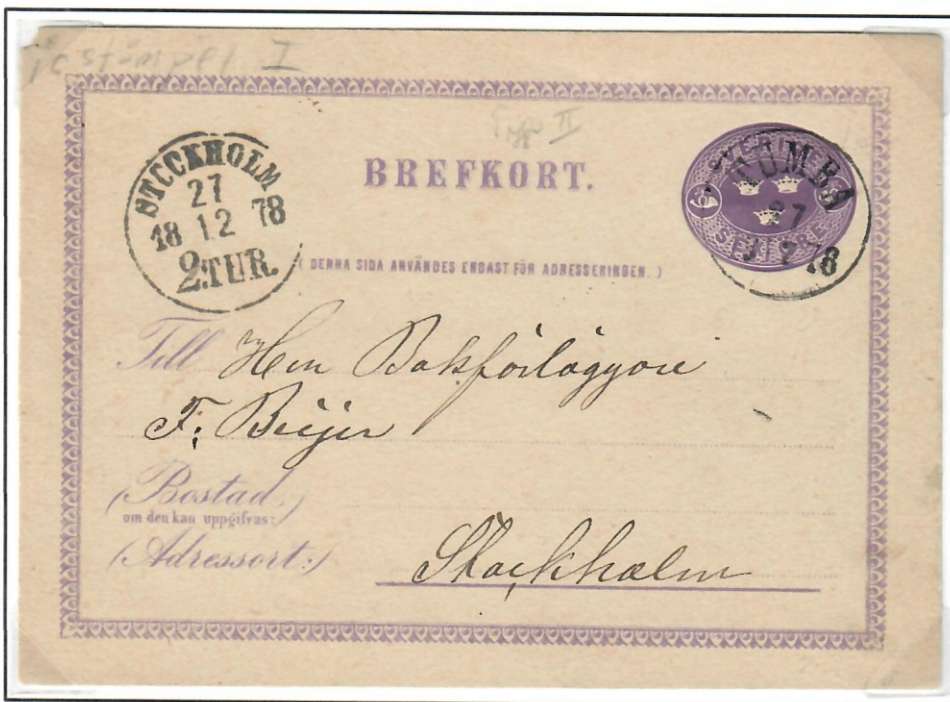 stämpel I
Typ II
BREFKORT.
STOCKHOLM
27
18 12 78
2.TUR.
SVERIGE
6 6
SEX ÖRE
TUMBA
27
12 78
( DENNA SIDA ANVÄNDES ENDAST FÖR ADRESSERINGEN. )
Till Herr Bokförläggare
F. Beijer
(Bostad
om den kan uppgifvas:)
(Adressort:)
Stockholm